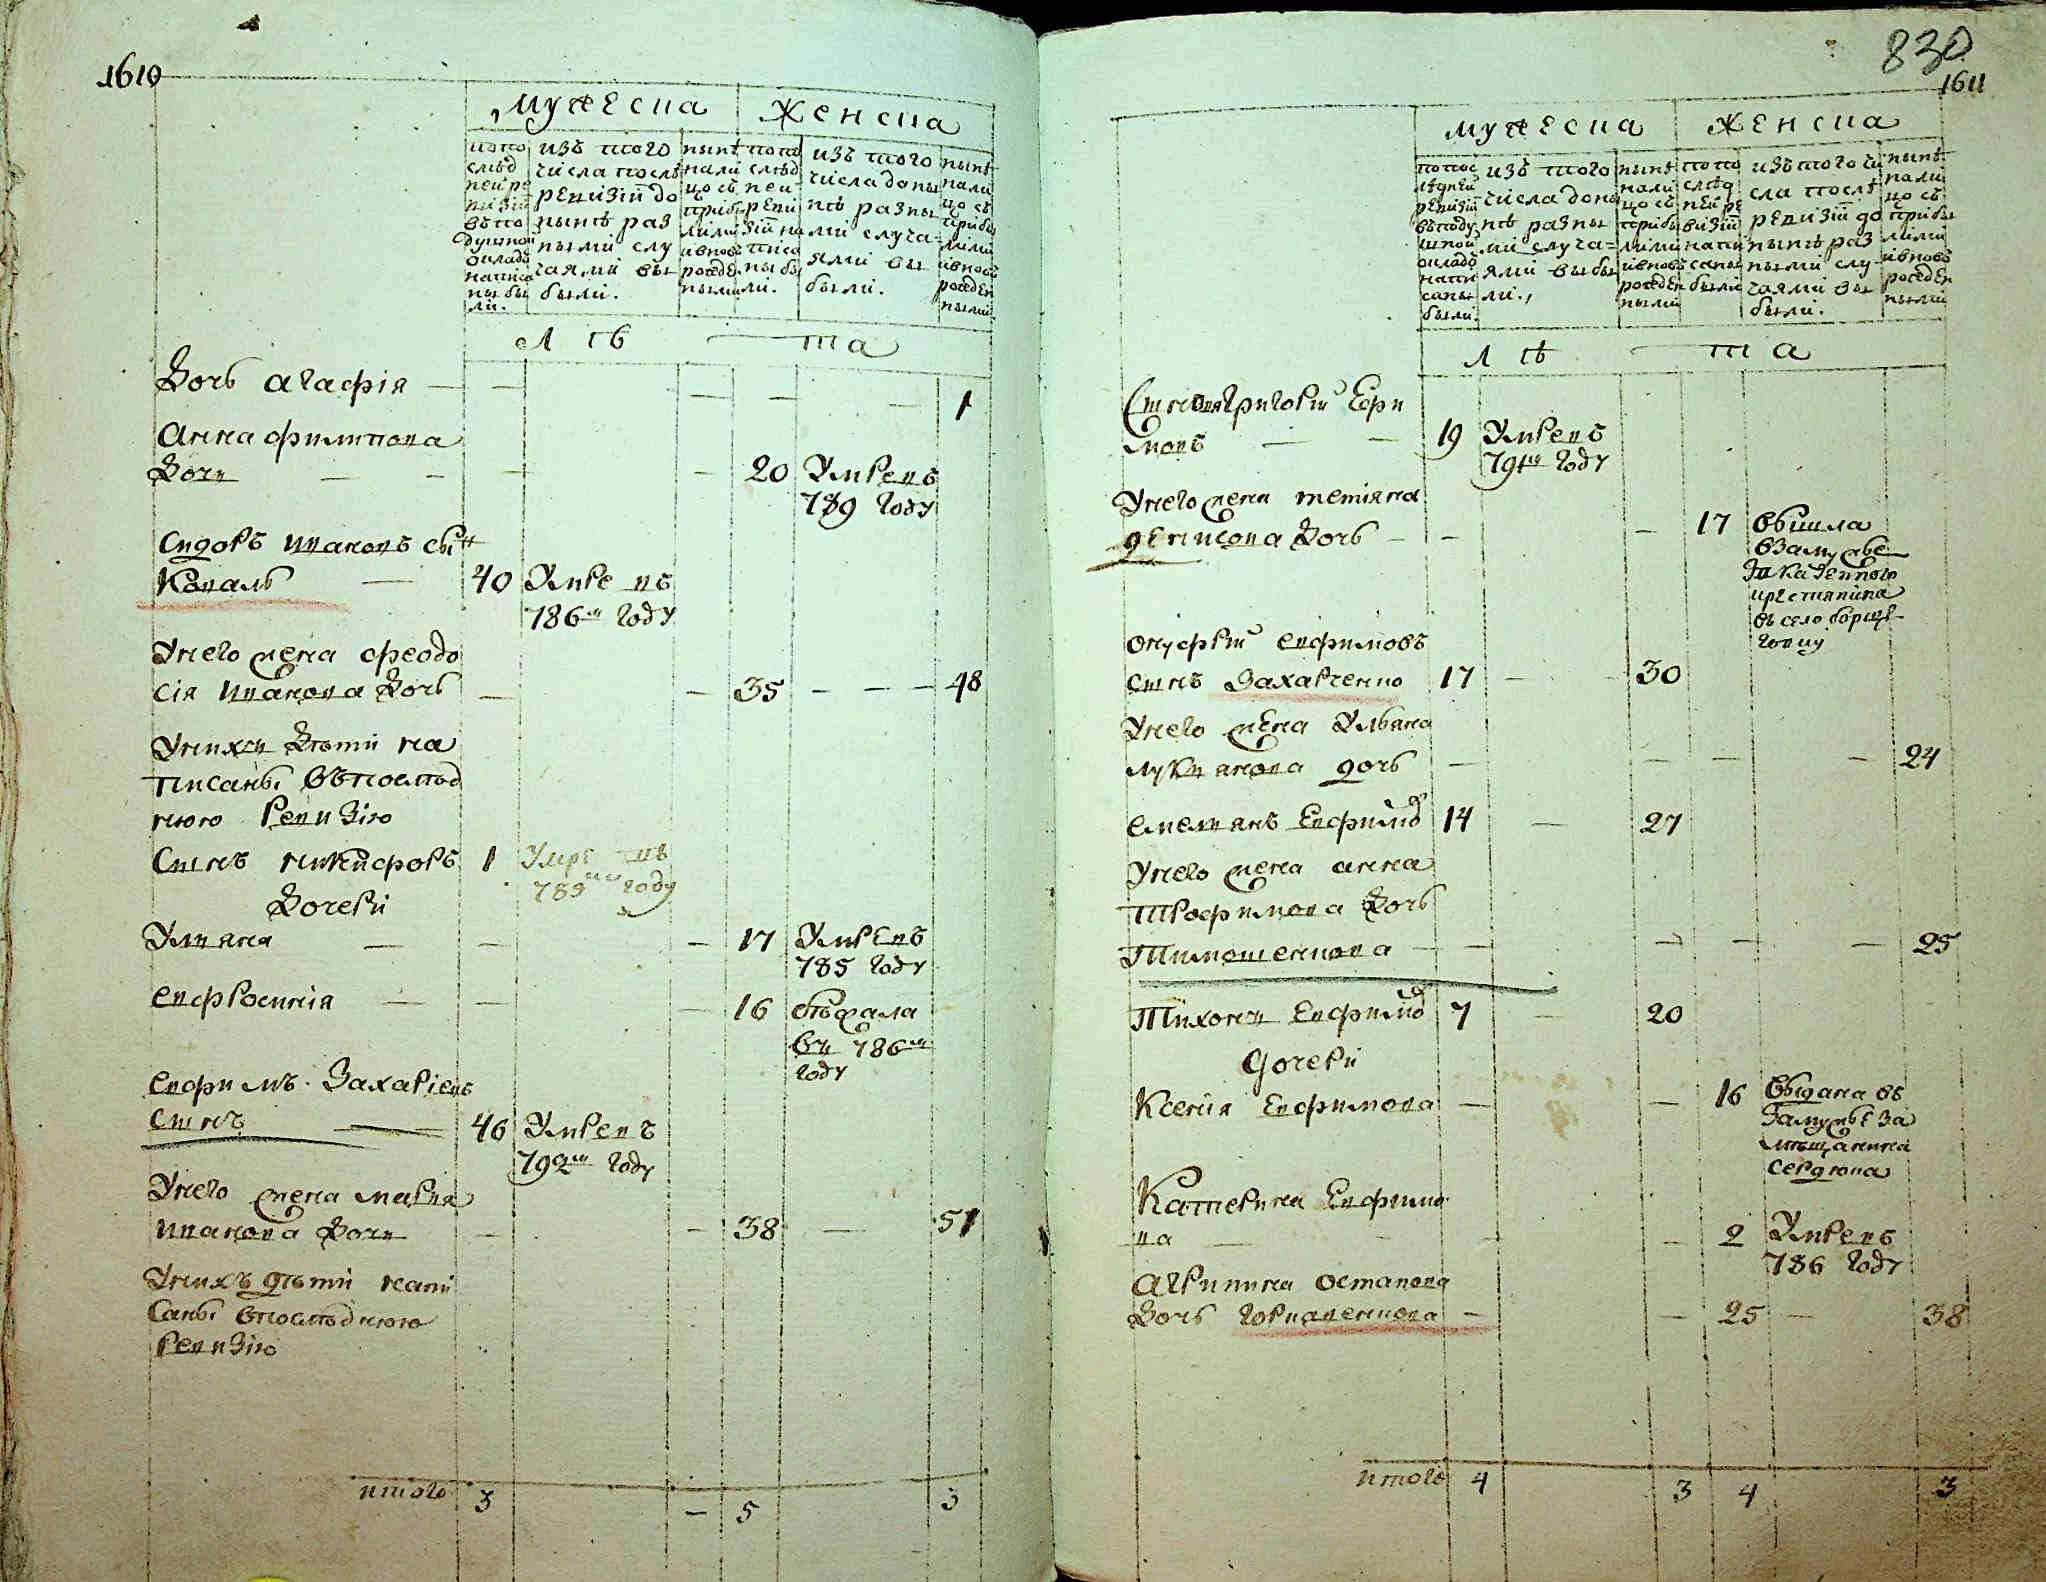 1610
мужеска женска
по по
слѣд
ней ре
визіи
въ по
душной
окладъ
написа
ны бы
ли.
изъ того
числа послѣ
ревизіи до
нынѣ раз
ными слу
чаями вы
были.
нынѣ
нали
цо съ
прибы
лыми
и вновь
рожден
ными
по по
слѣд
ней
реви
зіи на
писа
ны бы
ли.
изъ того
числа доны
нѣ разны
ми случа=
ями вы
были.
нынѣ
нали
цо съ
прибы
лыми
и вновь
рожден
ными
лѣ та
Дочь агафія 1
анна филипова
Дочь 20 Умреть
789 году
Сидоръ ивановъ сын
Коваль 40 Умре въ
786м году
У него жена феодо
сія иванова Дочь 35 48
У них дѣти на
писаны въ послѣд
нюю Ревизію
Сынъ никифоръ 1 Умре въ
789м году
Дочери
Ульяна 17 Умре въ
785 году
евфросинія 16 бѣжала
въ 786м
году
евфимъ Захаріевъ
Сынъ 46 Умре въ
792м году
У него жена марья
иванова Дочь 38 51
У нихъ дѣти напи
саны в послѣднюю
Ревизію
итого 3 5 3
830
1611
мужеска женска
по пос
лѣдней
ревизіи
въ поду
шной
окладъ
напи
саны
были.
изъ того
числа доны
нѣ разны
ми случа=
ями выбы
ли.
нынѣ
нали
цо съ
прибы
лыми
и вновь
рожден
ными
по по
слѣд
ней ре
визіи
напи
саны
были
изъ того чи
сла послѣ
ревизіи до
нынѣ раз
ными слу-
чаями вы
были.
нынѣ
нали
цо съ
прибы
лыми
и вновь
рожден
ными
лѣ та
Григорій Ефи
мовъ 19 Умре въ
791м году
У него жена татіяна
денисова Дочь 17 вышла
взамужье
за казенного
крестянина
въ село борще
говку
онуфрій евфимовъ
сынъ Захарченко 17 30
У него жена Ульяна
лукьянова дочь 24
емельянъ Евфимов 14 27
У него жена анна
трофимова Дочь
Тимошенкова 25
Тихонъ Евфимов 7 20
дочери
Ксенія Евфимова 16 выдана въ
замужье за
мѣщанина
сердюка
Катерина Евфимо
ва 2 Умре въ
786 году
агрипина остапова
Дочь горкавенкова 25 38
итого 4 3 4 3